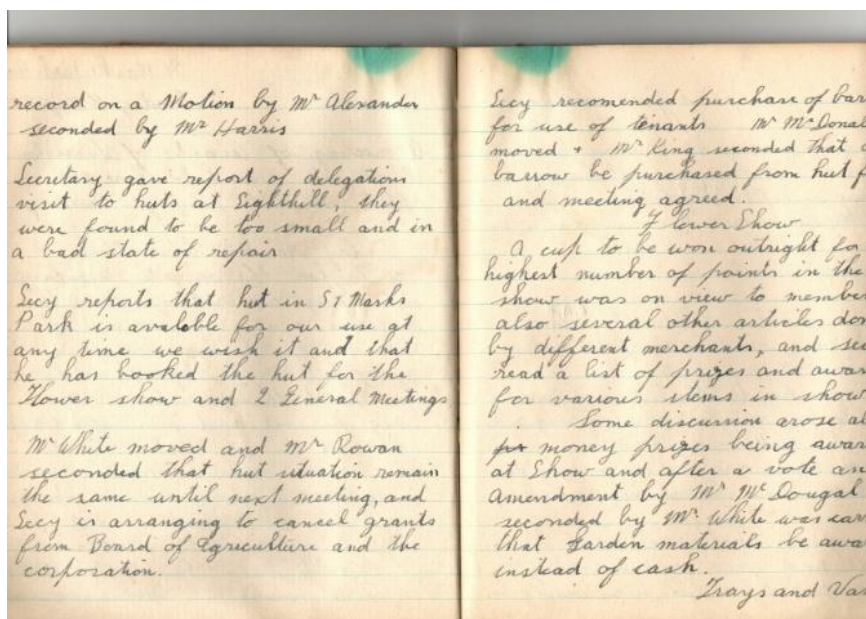 record on a Motion by Mr Alexander
seconded by Mr Harris
Secretary gave report of delegations
visit to huts at Sighthill, they
were found to be too small and in
a bad state of repair
Secy reports that hut in St Marks
Park is avalable for our use at
any time we wish it and that
he has booked the hut for the
Flower show and 2 General Meetings
Mr White moved and Mr Rowan
seconded that hut situation remain
the same until next meeting, and
Secy is arranging to cancel grants
from Board of Agriculture and the
corporation.
Secy recomended purchase of bar
for use of tenants Mr McDonal
moved + Mr King seconded that a
barrow be purchased from hut f
and meeting agreed.
Flower Show
A cup to be won outright for
highest number of points in the
show was on view to membe
also several other articles don
by different merchants, and sec
read a list of prizes and awar
for various items in show
Some discussion arose a
money prizes being awar
at Show and after a vote an
amendment by Mr McDougal
seconded by Mr White was carr
that Garden materials be awa
instead of cash.
Trays and Vas